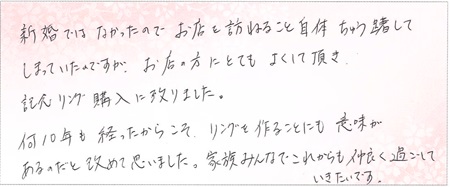 新婚ではなかったのでお店を訪ねること自体ちゅう躇して
しまっていたのですが、お店の方にとてもよくして頂き、
記念リング購入に致りました。
何10年も経ったからこそ、リングを作ることにも意味が
あるのだと改めて思いました。家族みんなでこれからも仲良く過ごして
いきたいです。